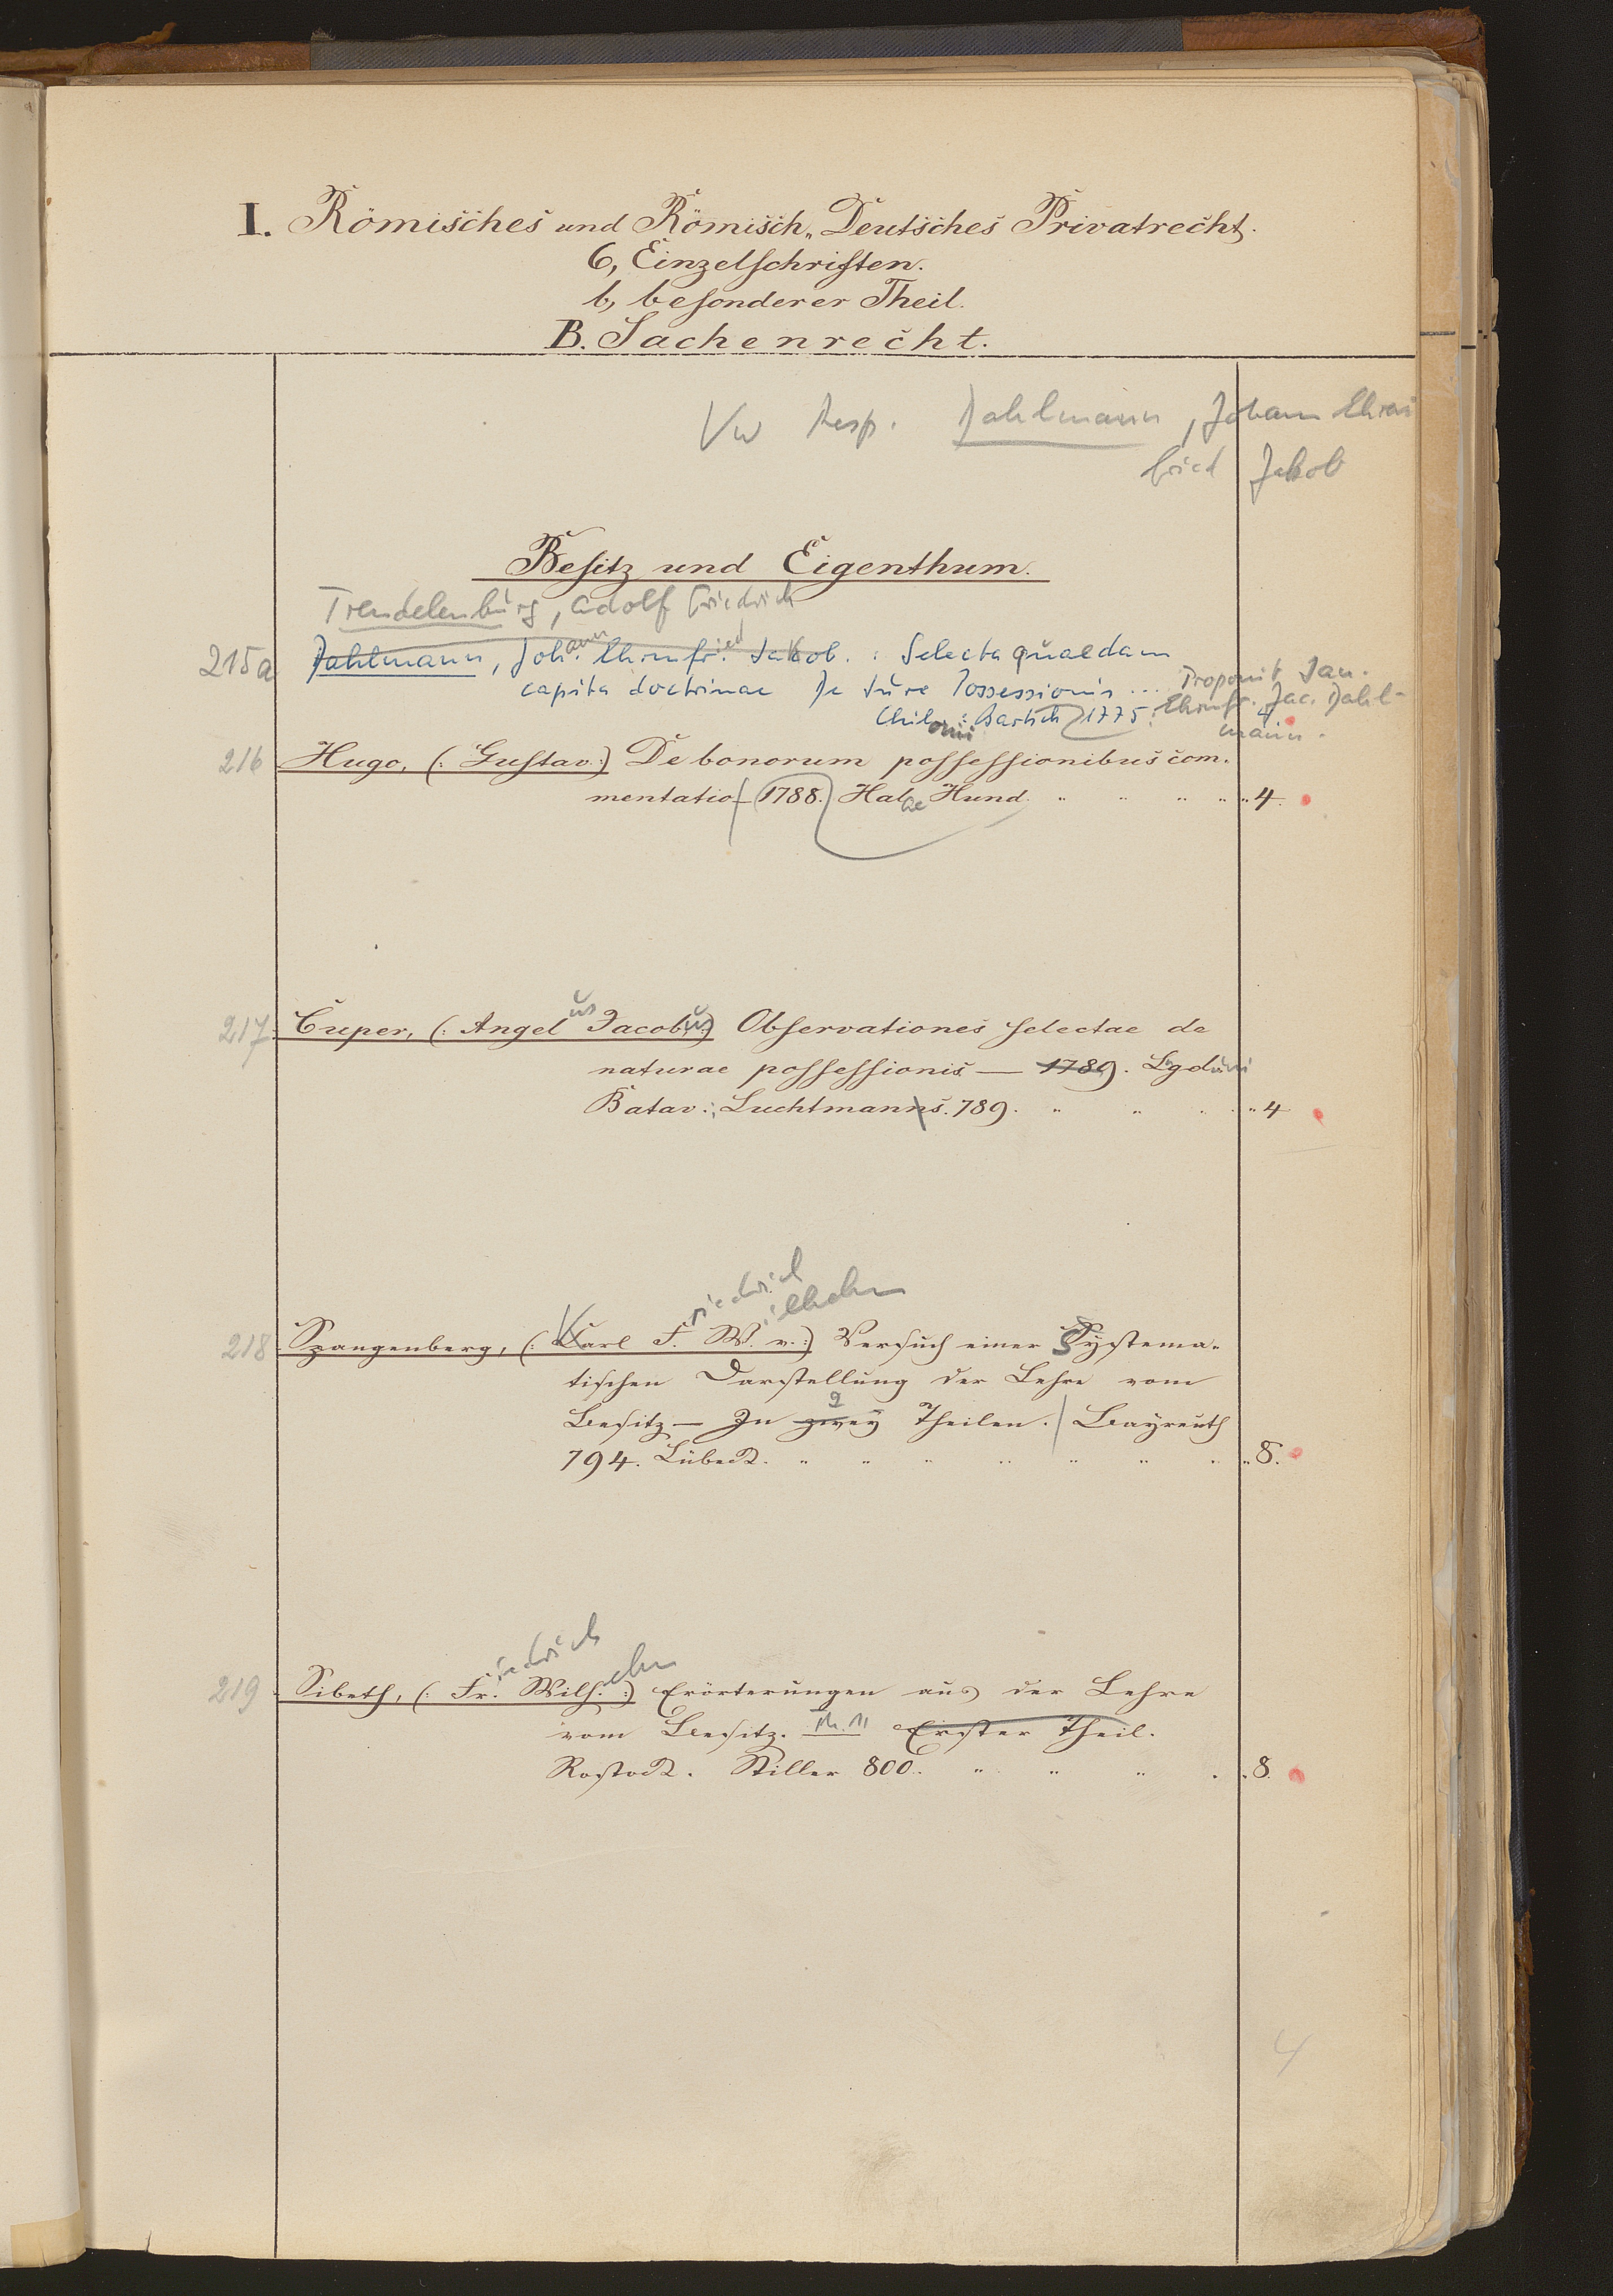 I. Römisches und Römisch„Deutsches Privatrecht.
6, Einzelschriften.
b, besonderer Theil.
B. Sachenrecht.
Vw Resp. Dahlmann, Johann Ehren
fried Jakob
Besitz und Eigenthum.
Trendelenburg, Adolf Friedrich
215a Dahlmann, Johann Ehrenfried Jakob. : Selecta quaedam
capita doctrinae De Iure Possessionis ... Proponit Jan.
Chilonii: Bartsch 1775. Ehrenfr. Jac. Dahl-
mann. 4
216 Hugo, (: Gustav:) De bonorum possessionibus com-
mentatio (1788.) Halae Hund. " " " " " 4.
217. Cuper, (: Angelus Jacobus:) Observationes selectae de
naturae possessionis — 1789. Lugduni
Batav.; Luchtmanns. 789. " " " " 4
218 Spangenberg, (: Karl Friedrich Wilhelm v.:) Versuch einer Systema-
tischen Darstellung der Lehre vom
Besitz — In zwey 2 Theilen. Bayreuth
794. Lübeck. " " " " " " " " 8.
219 Sibeth, (: Friedrich Wilhelm :) Erörterungen aus der Lehre
vom Besitz. Th. 1 Erster Theil.
Rostock. Stiller 800. " " " " . 8.
4